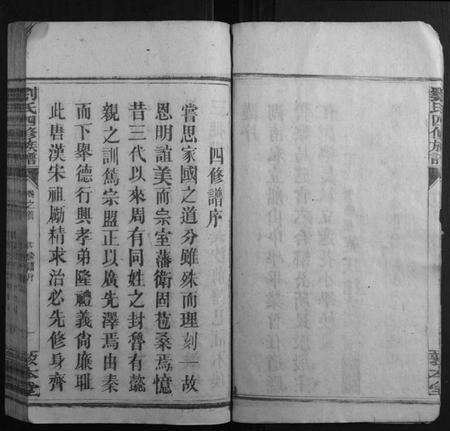 四修譜序
嘗思家國之道分雖殊而理則一故
恩明誼美而宗室藩衛固苞桑焉憶
昔三代以來周有同姓之封魯有懿
親之訓篤宗盟正以廣先澤焉由秦
而下舉德行興孝弟隆禮義尚廉恥
此唐漢宋祖勵精求治必先修身齊
劉氏四修族譜
卷之首
敦本堂
劉氏四修族譜
敦本堂